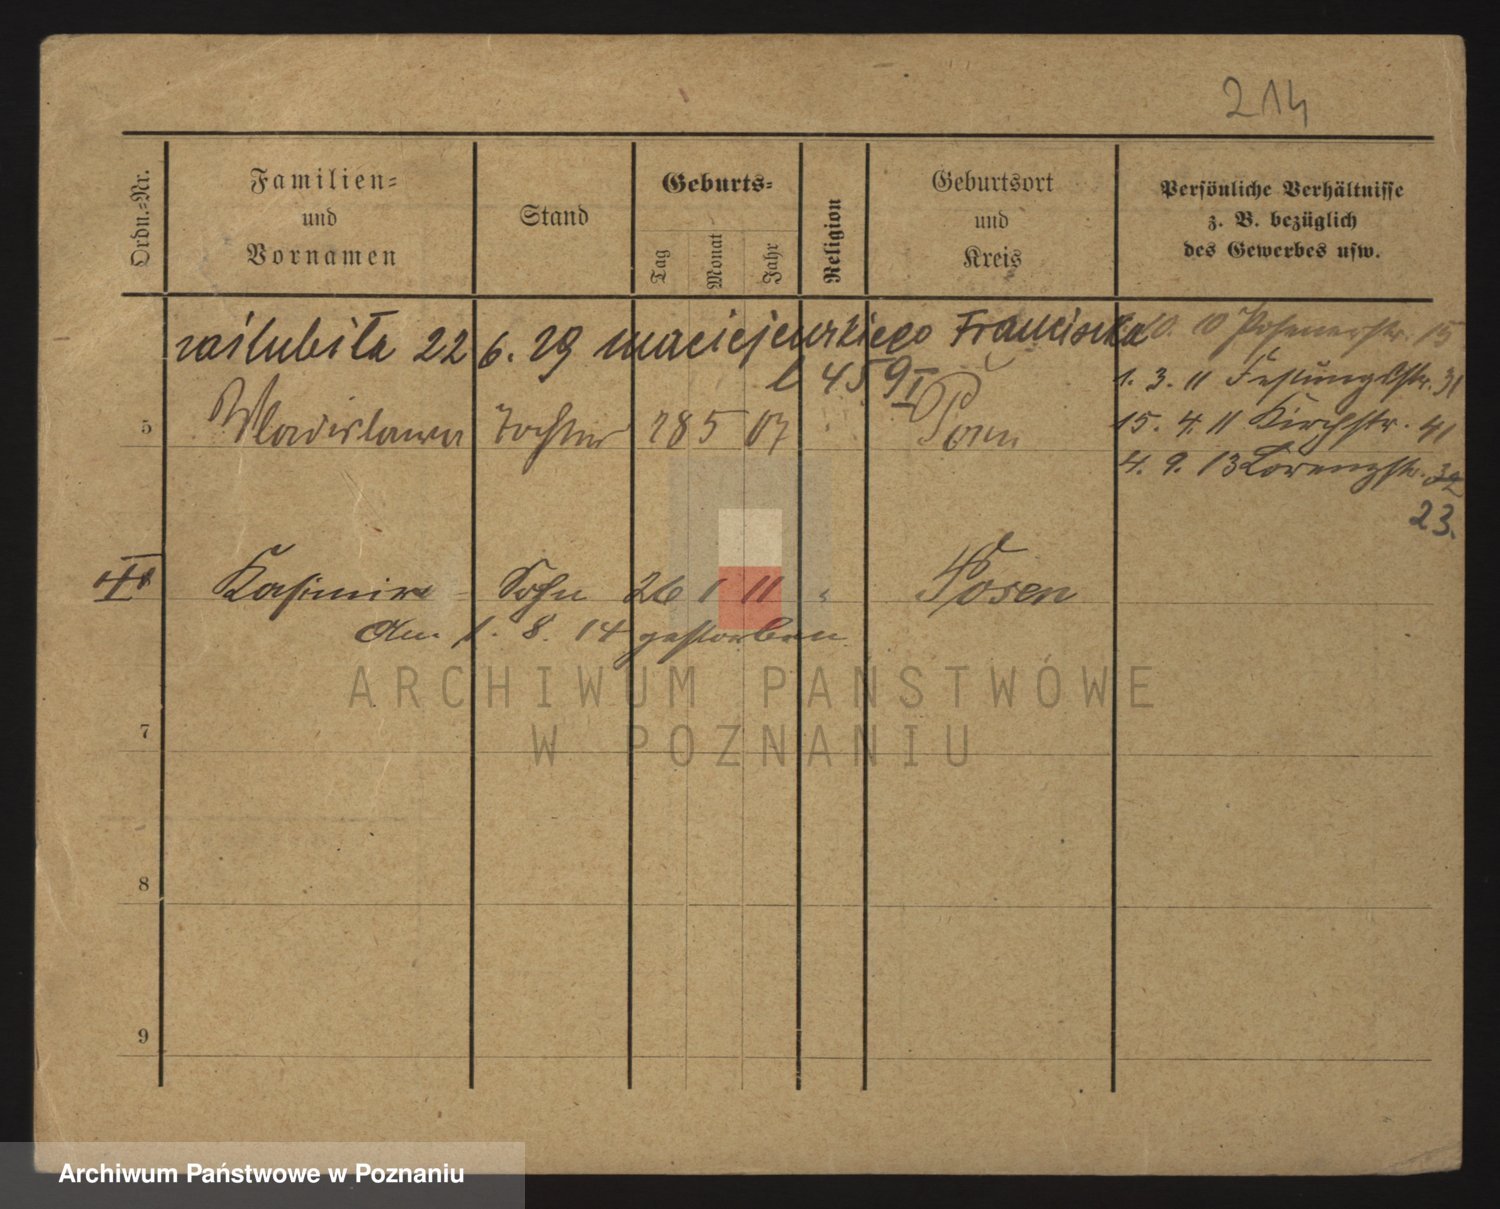 214
Ordn.-Nr.
Familien-
und
Vornamen
Stand
Geburts-
Tag
Monat
Jahr
Religion
Geburtsort
und
Kreis
Persönliche Verhältnisse
z. B. bezüglich
des Gewerbes usw.
zaślubiła 22 6. 29 maciejewskiego Franciszka
l 459 I
10. 10 Posenerstr. 15
1. 3. 11 Festungsstr. 31
15. 4. 11 Kirchstr. 41
4. 9. 13 Lorenzstr. 32
23.
5 Wladislawa Tochter 28 5 07 Posen
Kasimir Sohn 26 1 11 " Posen
Am 1. 8. 14 gestorben
7
8
9
ARCHIWUM PAŃSTWOWE
W POZNANIU
Archiwum Państwowe w Poznaniu